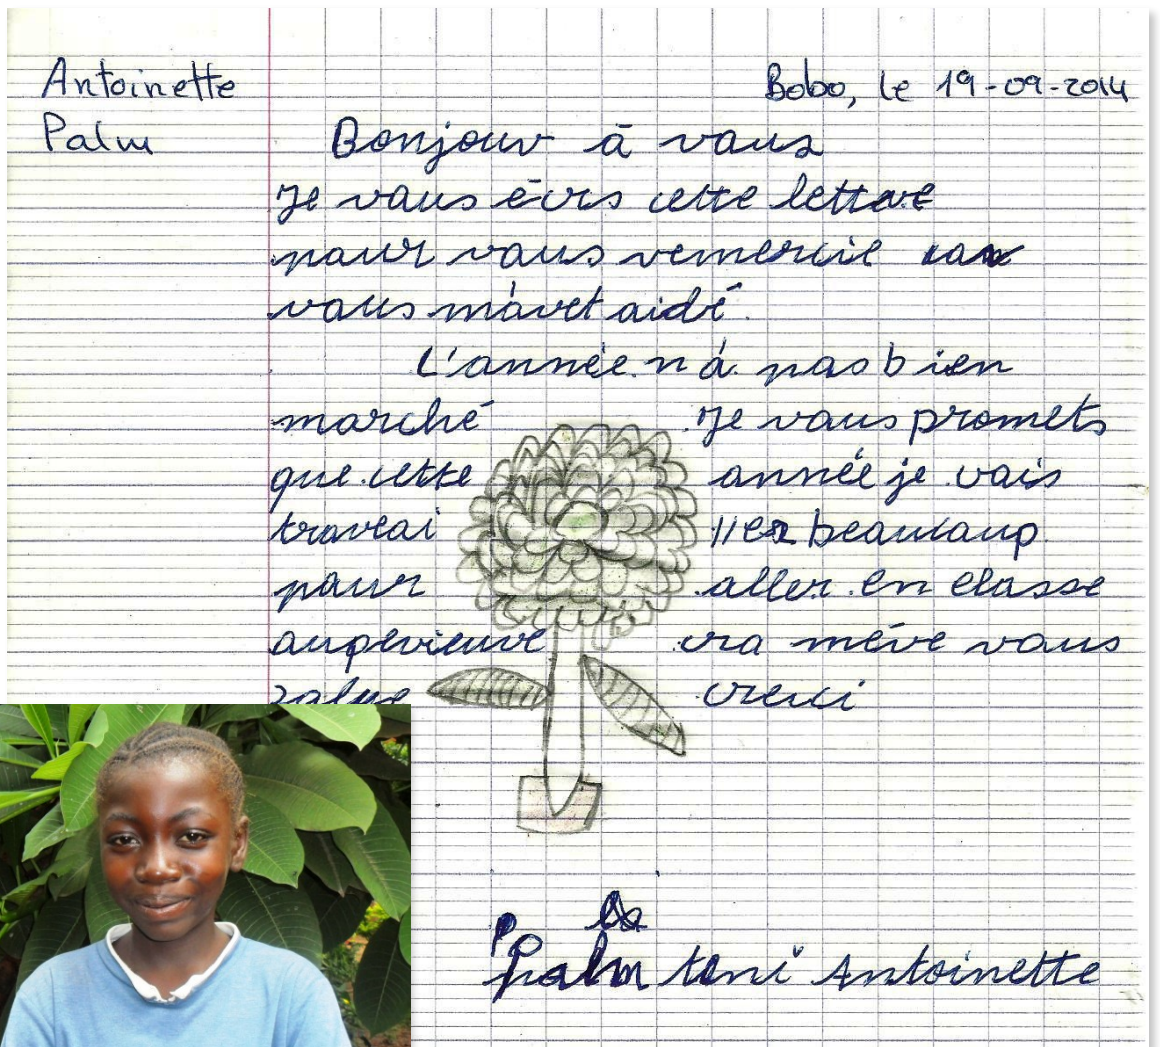 Antoinette
Palm
Bobo, le 19-09-2014
Bonjour à vous
Je vous écris cette lettre
pour vous remercie car
vous m'avet aidé.
L'année n'a pas bien
marché Je vous promets
que cette année je vais
traveai ller beaucoup
pour aller en classe
auperieure ma mère vous
salue merci
Palm teni Antoinette